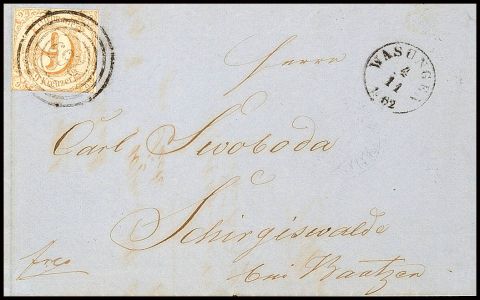 Kreuzer
Herrn
WASUNGEN
4
11
62
Carl Swoboda
Schirgiswalde
bei Bautzen
frco